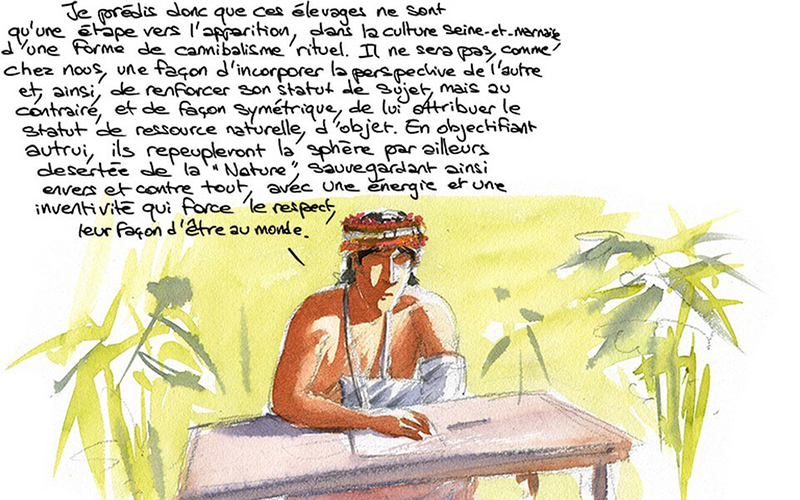 Je prédis donc que ces élevages ne sont
qu'une étape vers l'apparition, dans la culture seine-et-marnaise
d'une forme de cannibalisme rituel. Il ne sera pas, comme
chez nous, une façon d'incorporer la perspective de l'autre
et, ainsi, de renforcer son statut de sujet, mais au
contraire, et de façon symétrique, de lui attribuer le
statut de ressource naturelle, d'objet. En objectifiant
autrui, ils repeupleront la sphère par ailleurs
desertée de la "Nature", sauvegardant ainsi
envers et contre tout, avec une énergie et une
inventivité qui force le respect,
leur façon d'être au monde.